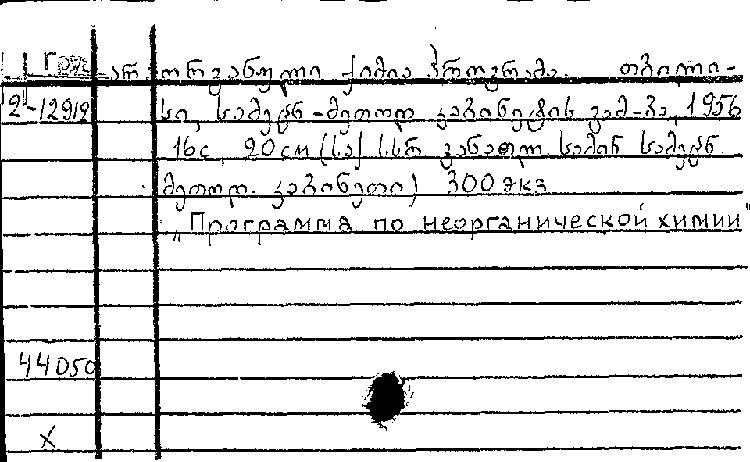 არაორგანული ქიმია პროგრამა. თბილი-
2-12912 სი, სამეცნ-მეთოდ კაბინეტის გამ-ბა, 1956
16с 20см (სა| სსრ განათლ სამინ სამეცნ
მეთოდ. კაბინეტი) 300 экз
„Программа по неорганической химии"
44050
X